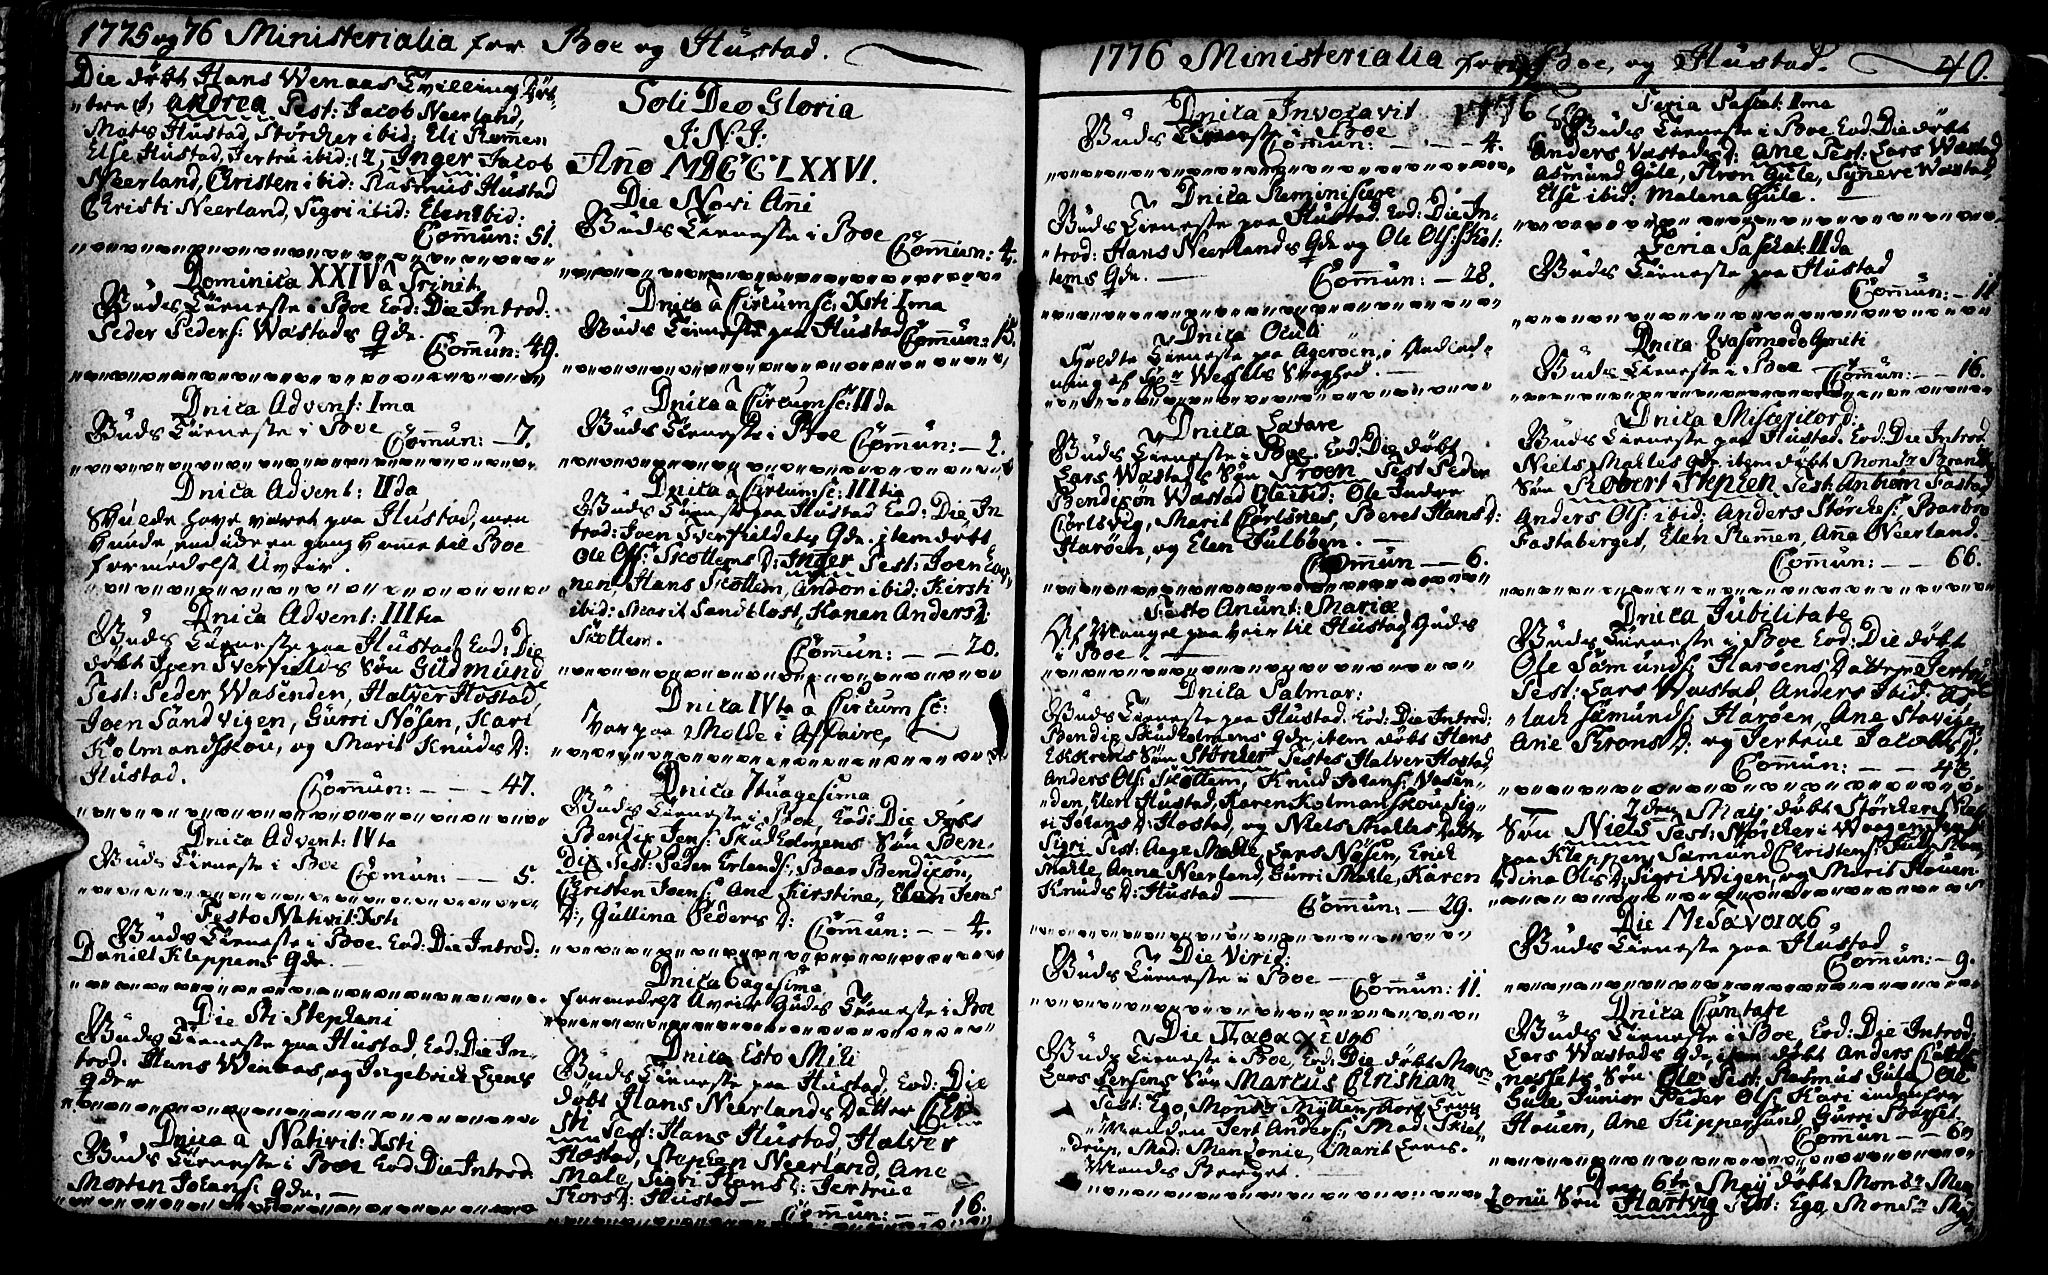 1775 og 76 Ministerialia for Boe og Hustad.
Die döbt Hans Wenaas Tvilling Döt-
"tre (1, Andrea Test: Jacob Neerland,
Mats Hustad, Störcher ibid: Eli Remen
Else Hustad, Jertru ibid: (2, Inger Jacob
Neerland, Christen ibid: Rasmus Hustad
Christi Neerland, Sigri ibid: Elen ibid:
Comun: 51.
Dominica XXIV à Trinit.
Guds Tieneste i Boe Eod: Die Introd:
Peder Peders: Wastads Qde.
Comun: 49.
Dnica Advent: Ima
Guds Tieneste i Boe
Comun: - 7.
Dnica Advent: IIda
Skulde have været paa Hustad, men
kunde end ide en gang komme til Boe
formedelst Uveir.
Dnica Advent: IIItia
Guds Tieneste paa Hustad Eod: Die
döbt Joen Tverfields Sön Gudmund
Test: Peder Wasenden, Halver Hostad
Joen Sandvigen, Gurri Nösen, Kari
Kolmandskou, og Marit Knuds D:
Hustad.
Comun: - - - 47.
Dnica Advent: IVta
Guds Tieneste i Boe
Comun: - - 5.
Festo Nativit: Xsti
Guds Tieneste i Boe. Eod: Die Introd:
Daniel Kleppens Qde.
Die Sti Stephani
Guds Tieneste paa Hustad, Eod: Die In-
trod: Hans Wenaas, og Ingebrict Ezens
Qder
Dnica à Nativit: Xsti
Guds Tieneste i Boe Eod: Die Introd:
Morten Johans: Qde.
Soli Deo Gloria
I: N: I:
Año MDCCLXXVI.
Die Novi Añi
Guds Tieneste i Boe
Comun: 4.
Dnica à Circumsc: Xsti Ima
Guds Tieneste paa Hustad
Comun: 15.
Dnica à Circumsc: IIda
Guds Tieneste i Boe Comun: - 2.
Dnica à Circumsc: IIItia
Guds Tieneste paa Hustad Eod: Die In
trod: Joen Tverfieldets Qde. item döbt
Ole Ols: Skottems D: Inger Test: Joen
nen, Hans Skottem, Andor ibid: Kirsti
ibid: Marit Sandblost, Karen Anders D:
Skottem.
Comun: - - 20.
Dnica IVta à Circumsc:
Var paa Molde i Affaire
Dnica 7tuagesima
Guds Tieneste i Boe, Eod: Die döbt
Bendix Jens: Skudholmens Sön Ben-
dix Test: Peder Erlands: Baar Bendixön,
Christen Joens: Ane Kirstine, Elen Jens
D:, Gullina Peders D:
Comun: - - 4.
Dnica 6agesima
Formedelst Uveir Guds Tieneste i Boe
Dnica Esto Mihi
Guds Tieneste paa Hustad, Eod: Die
döbt Hans Neerlands Datter Chri
sti Test: Hans Hustad, Halver
Hostad, Stephen Neerland, Ane
Male, Sigri Hans D: Jertrue
Thors D: Hustad
Comun: - - 16.
1776 Ministerialia for Boe, og Hustad.
40.
Dnica Invocavit 1776
Guds Tieneste i Boe
Comun: - - - 4.
Dnica Reminiscere
Guds Tieneste paa Hustad. Eod: Die In-
"trod: Hans Neerlands Qde og Ole Ols: Skot-
tems Qde.
Comun: - 28.
Dnica Oculi
Holdte Tieneste paa Ageröen, i Anled-
ning af Hr Wessels Svaghed.
Dnica Lætare
Guds Tieneste i Boe. Eod: Die döbt
Lars Wastads Sön Troen Test Peder
Bendixön Wæstad Ole ibid: Ole Indre
Cortsvig, Marit Cortsnes, Beret Hans D:
Haröen, og Elen Julböen.
Comun - - 6.
Festo Anunt: Mariæ
Af Mangel paa Veir til Hustad Guds
i Boe.
Dnica Palmar:
Guds Tieneste paa Hustad. Eod: Die Introd:
Bendix Skudholmens Qde, item döbt Hans
Sön Störcher Testes Halver Hostad
Anders Ols: Skottem, Knud Johans: Wasen-
"den, Elen Hustad, Karen Kolmanskou Sig-
ri Johans D: Hostad, og Niels Males Datter
Sigri Test: Aage Male, Lars Nösen, Erich
Male, Anna Neerland, Gurri Male, Karen
Knuds D: Hustad
Comun: - 29.
Die Virid:
Guds Tieneste i Boe
Comun: 11.
Die Παρασκευης
Guds Tieneste i Boe, Eod: Die döbt Monsr
Lars Persens Sön Marcus Christian
Test: Ego, Monsr Myllenphort,
Manden Jert Anders: Mad:
drup, Mad: Mentzonie, Marit
Mands Berget.
Feria Paschat: Ima
Guds Tieneste i Boe Eod: Die döbt
Anders Vastads D: Ane Test: Lars Wæstad
Asmund Gule, Thron Gule, Syneve Wæstad,
Else ibid: Malena Gule.
Feria Paschat: IIda
Guds Tieneste paa Hustad
Comun: - 11
Dnica Qvasimodo Geniti
Guds Tieneste i Boe
Comun: - - 16.
Dnica Misericord:
Guds Tieneste paa Hustad. Eod: Die Introd:
Niels Males Qde. item döbt Monsr
Sön Robert Stephen Test: Anbiörn Fastad
Anders Ols: ibid: Anders Störches: Barbro
Fastaberget, Elen Remen, Aña Neerland.
Comun: - - 66.
Dnica Jubilate
Guds Tieneste i Boe Eod: Die döbt
Ole Samunds: Haroens Datter Jertrue
Test: Lars Wæstad, Anders ibid:
"lack Samunds: Haröen, Ane
Ane Throns D: og Jertrue Jacobs D:
Comun: - - 43.
2den May döbt Störcher
Sön Niels Test: Störcher Waagen,
paa Kleppen, Samund Christens:
dina Ols D: Sigri Wigen, og Marit Houen
Die
Guds Tieneste paa Hustad
Comun: - 9.
Dnica Cantate
Guds Tieneste i Boe Eod: Die Introd:
Lars Wastads Qde item döbt Anders
nossets Sön Ole Test: Rasmus Gule, Ole
Gule Junior Peder Ols: Kari
Houen, Ane Kippersund, Gurri
Comun - - 60
Den 6te May döbt Monsr Men
zonii Sön Hartvig Test: Ego, Monsr